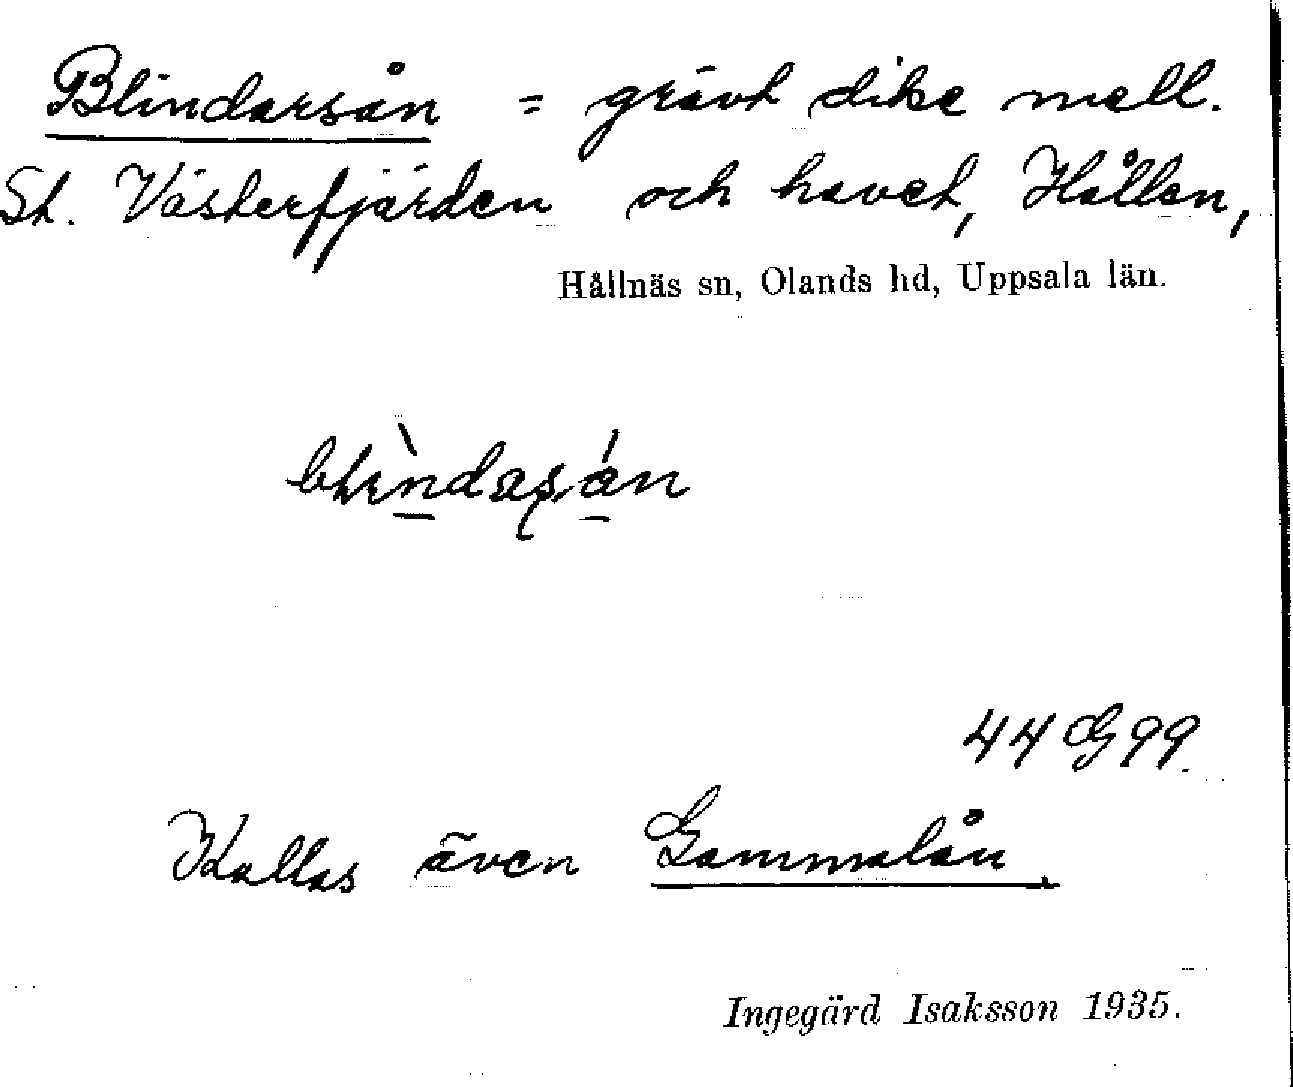 Blindarsån = grävt dike mell.
St. Västerfjärden och havet, Hållen,
Hållnäs sn, Olands hd, Uppsala län.
44 G 99.
Kallas även Gammalån.
Ingegärd Isaksson 1935.